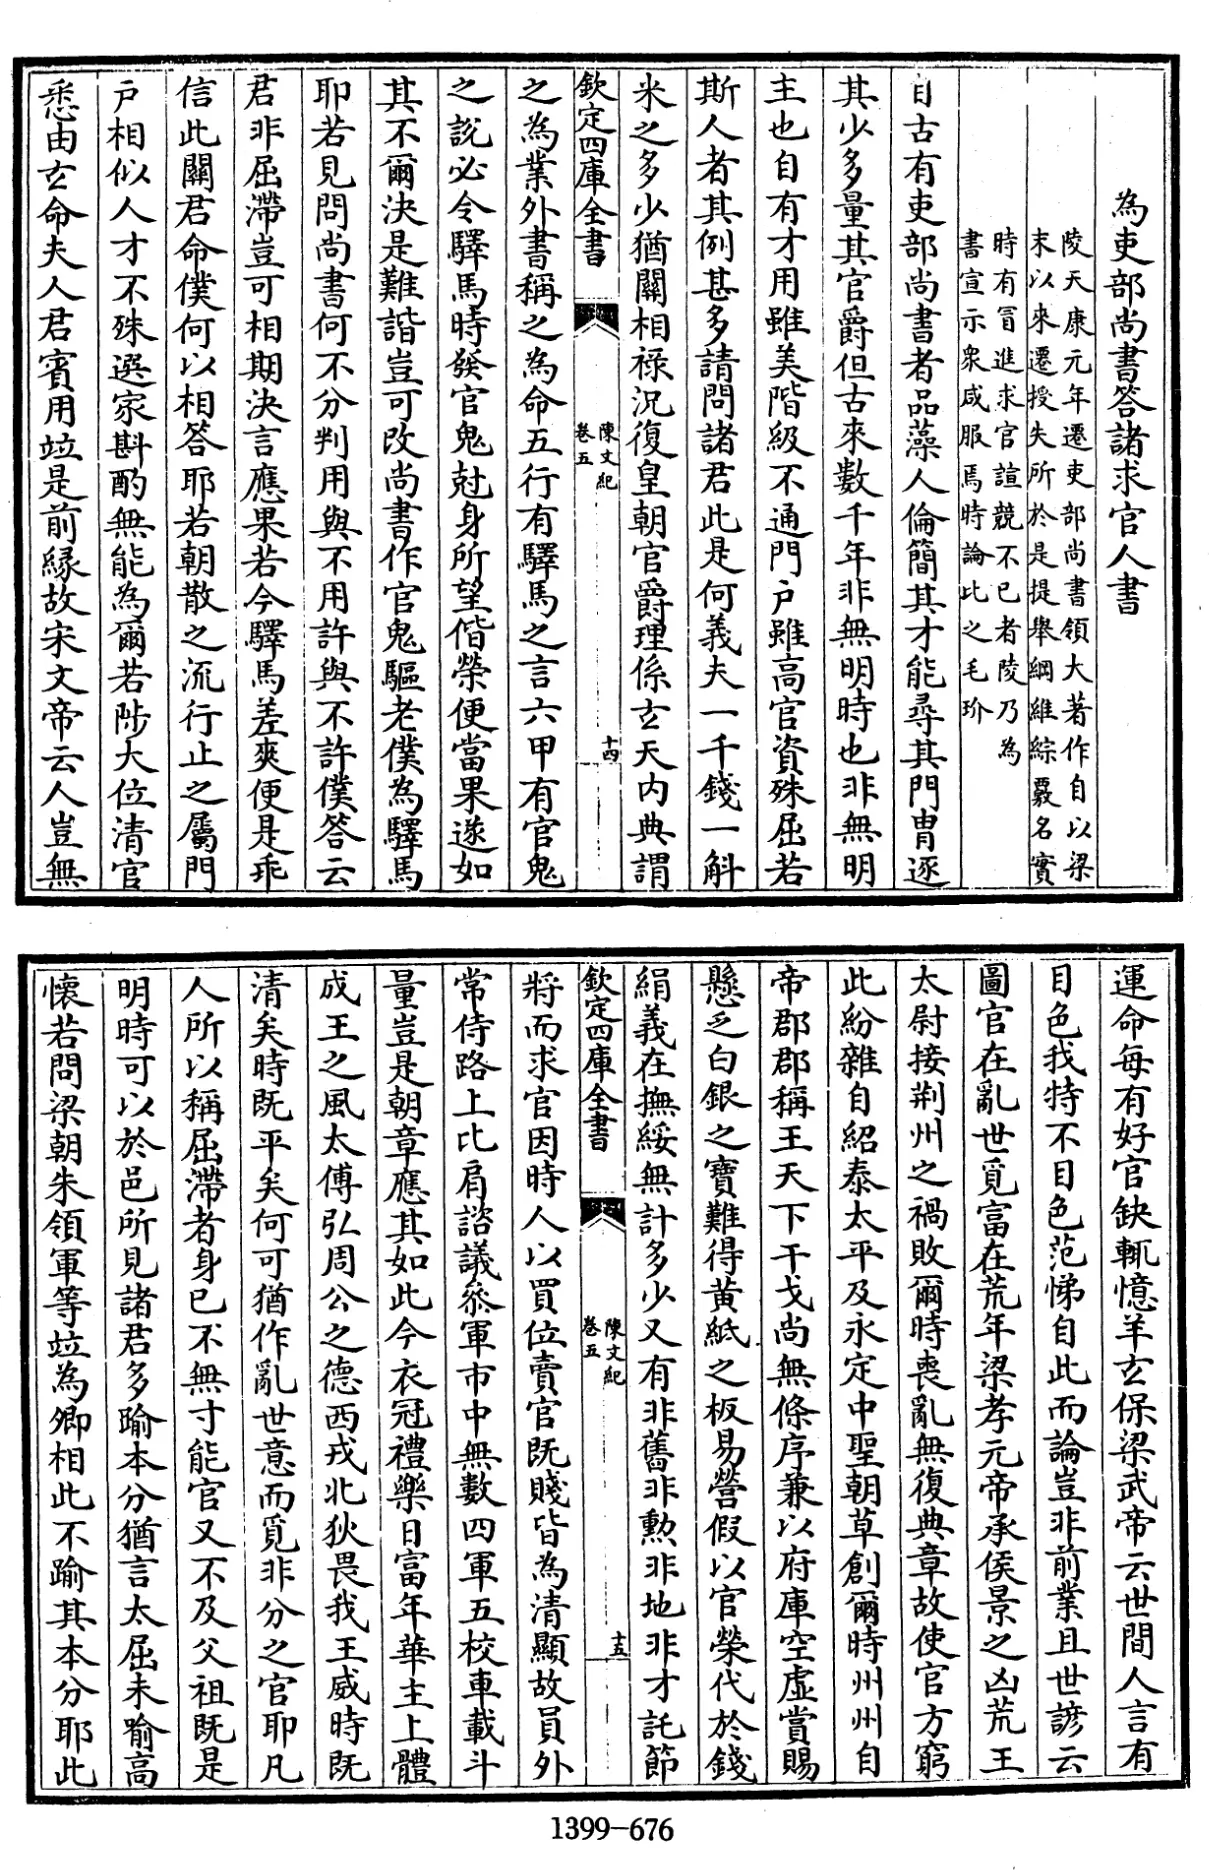 為吏部尚書答諸求官人書
陵天康元年遷吏部尚書領大著作自以梁
末以來遷授失所於是提舉綱維綜覈名實
時有冒進求官諠競不已者陵乃為
書宣示衆咸服焉時論比之毛玠
自古有吏部尚書者品藻人倫簡其才能尋其門胄逐
其少多量其官爵但古來數千年非無明時也非無明
主也自有才用雖美階級不通門戶雖高官資殊屈若
斯人者其例甚多請問諸君此是何義夫一千錢一斛
米之多少猶關相祿況復皇朝官爵理係玄天内典謂
欽定四庫全書
陳文紀
卷五
十四
之為業外書稱之為命五行有驛馬之言六甲有官鬼
之說必令驛馬時發官鬼尅身所望偕榮便當果遂如
其不爾決是難諧豈可改尚書作官鬼驅老僕為驛馬
耶若見問尚書何不分判用與不用許與不許僕答云
君非屈滯豈可相期決言應果若今驛馬差爽便是乖
信此關君命僕何以相答耶若朝散之流行止之屬門
戶相似人才不殊選家斟酌無能為爾若陟大位清官
悉由玄命夫人君賓用竝是前緣故宋文帝云人豈無
運命每有好官缺輒憶羊玄保梁武帝云世間人言有
目色我特不目色范悌自此而論豈非前業且世諺云
圖官在亂世覓富在荒年梁孝元帝承侯景之凶荒王
太尉接荆州之禍敗爾時喪亂無復典章故使官方窮
此紛雜自紹泰太平及永定中聖朝草創爾時州州自
帝郡郡稱王天下干戈尚無條序兼以府庫空虛賞賜
懸乏白銀之寶難得黄紙之板易營假以官榮代於錢
絹義在撫綏無計多少又有非舊非勲非地非才託節
欽定四庫全書
陳文紀
卷五
十五
將而求官因時人以買位賣官既賤皆為清顯故員外
常侍路上比肩諮議叅軍市中無數四軍五校車載斗
量豈是朝章應其如此今衣冠禮樂日富年華主上體
成王之風太傅弘周公之德西戎北狄畏我王威時既
清矣時既平矣何可猶作亂世意而覓非分之官耶凡
人所以稱屈滯者身已不無寸能官又不及父祖既是
明時可以於邑所見諸君多踰本分猶言太屈未喻高
懷若問梁朝朱領軍等竝為卿相此不踰其本分耶此
1399-676